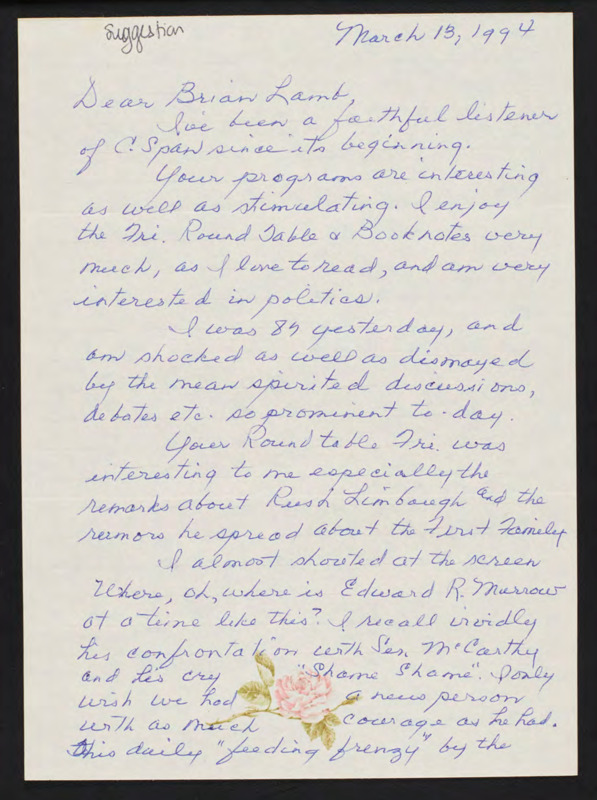 Suggestion
March 13, 1994
Dear Brian Lamb,
I've been a faithful listener
of C. Span since its beginning.
Your programs are interesting
as well as stimulating. I enjoy
the Fri. Round Table & Booknotes very
much, as I love to read, and am very
interested in politics.
I was 84 yesterday, and
am shocked as well as dismayed
by the mean spirited discussions,
debates etc. so prominent to-day.
Your Round table Fri. was
interesting to me especially the
remarks about Rush Limbaugh and the
rumors he spread about the First Family
I almost shouted at the screen
Where, oh, where is Edward R. Murrow
at a time like this? I recall vividly
his confrontation with Sen McCarthy
and his cry "Shame Shame". I only
wish we had a news person
with as much courage as he had.
This daily "feeding frenzy" by the